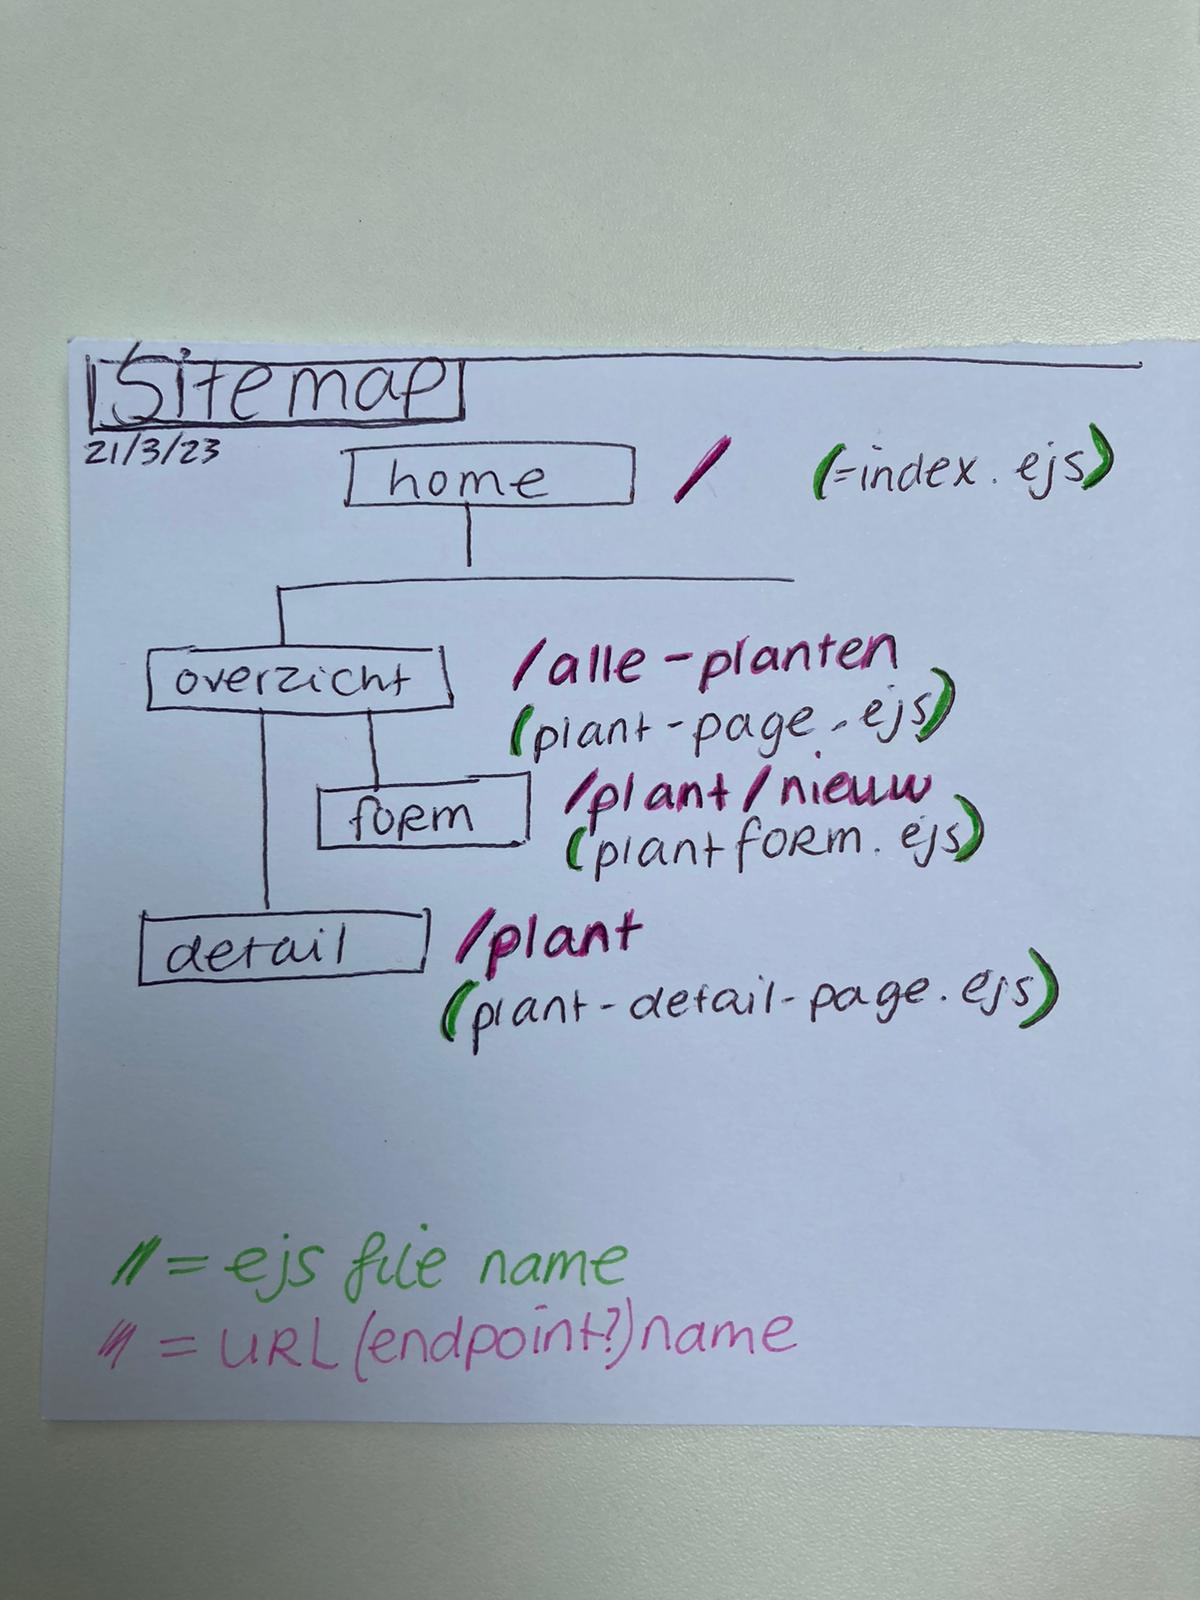 Sitemap
21/3/23
home / (=index.ejs)
overzicht /alle-planten
(plant-page.ejs)
form /plant/nieuw
(plantform.ejs)
detail /plant
(plant-detail-page.ejs)
// = ejs file name
// = URL (endpoint?) name